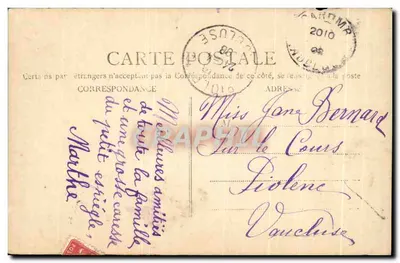 CARTE POSTALE
Certains pays étrangers n'acceptent pas la Correspondance de ce côté, se renseigner à la poste
CORRESPONDANCE
ADRESSE
Meilleures amitiés
de toute la famille
et une grosse caresse
du petit espiègle
Marthe
Miss Jane Bernard
Sur le Cours
Piolenc
Vaucluse
VAUCLUSE
PIOLENC
2010